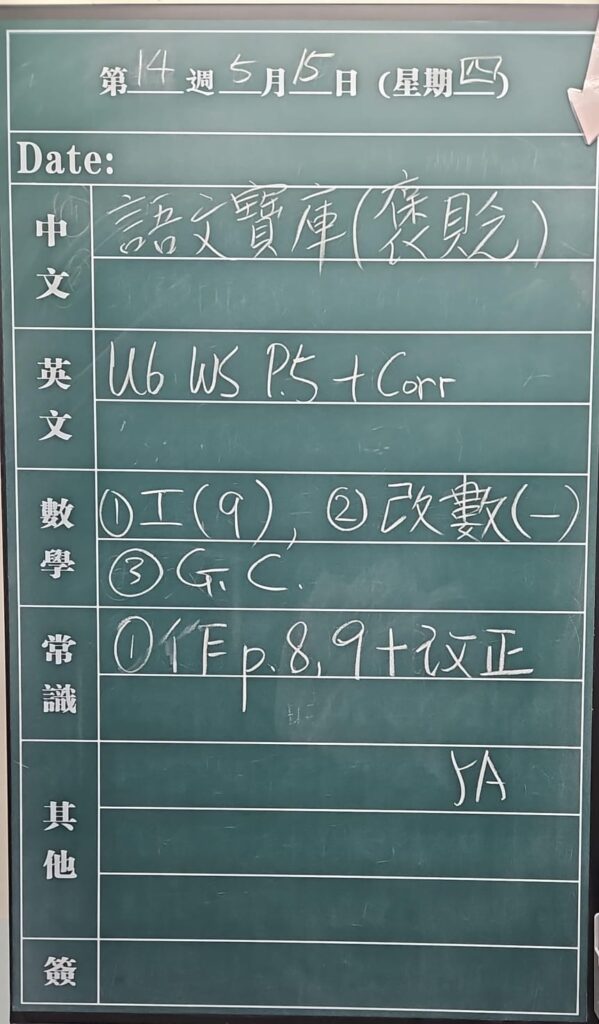 第14週5月15日(星期四)
Date:
中文
語文寶庫(褒貶)
英文
U6 WS P.5 + Corr
數學
①工(9), ②改數(一)
③G.C.
常識
①作p.8,9+改正
其他
5A
簽